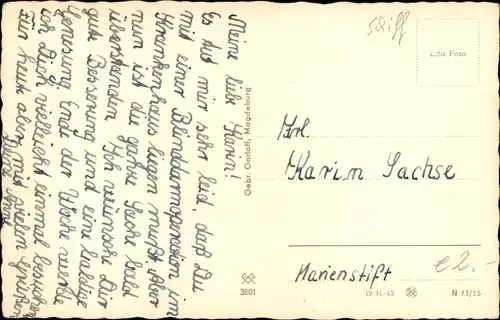 Meine liebe Karin!
Es tut mir sehr leid, daß Du
mit einer Blinddarmoperation im
Krankenhaus liegen mußt. Aber
nun ist die ganze Sache bald
überstanden. Ich wünsche Dir
gute Besserung und eine baldige
Genesung. Ende der Woche werde
ich Dich vielleicht einmal besuchen.
Für heute aber mit vielen Grüßen
Deine
Gebr. Garloff, Magdeburg
3801
Schiff
Echt Foto
Frl.
Karin Sachse
Marienstift
e2.-
IV-14-45
N 73/55